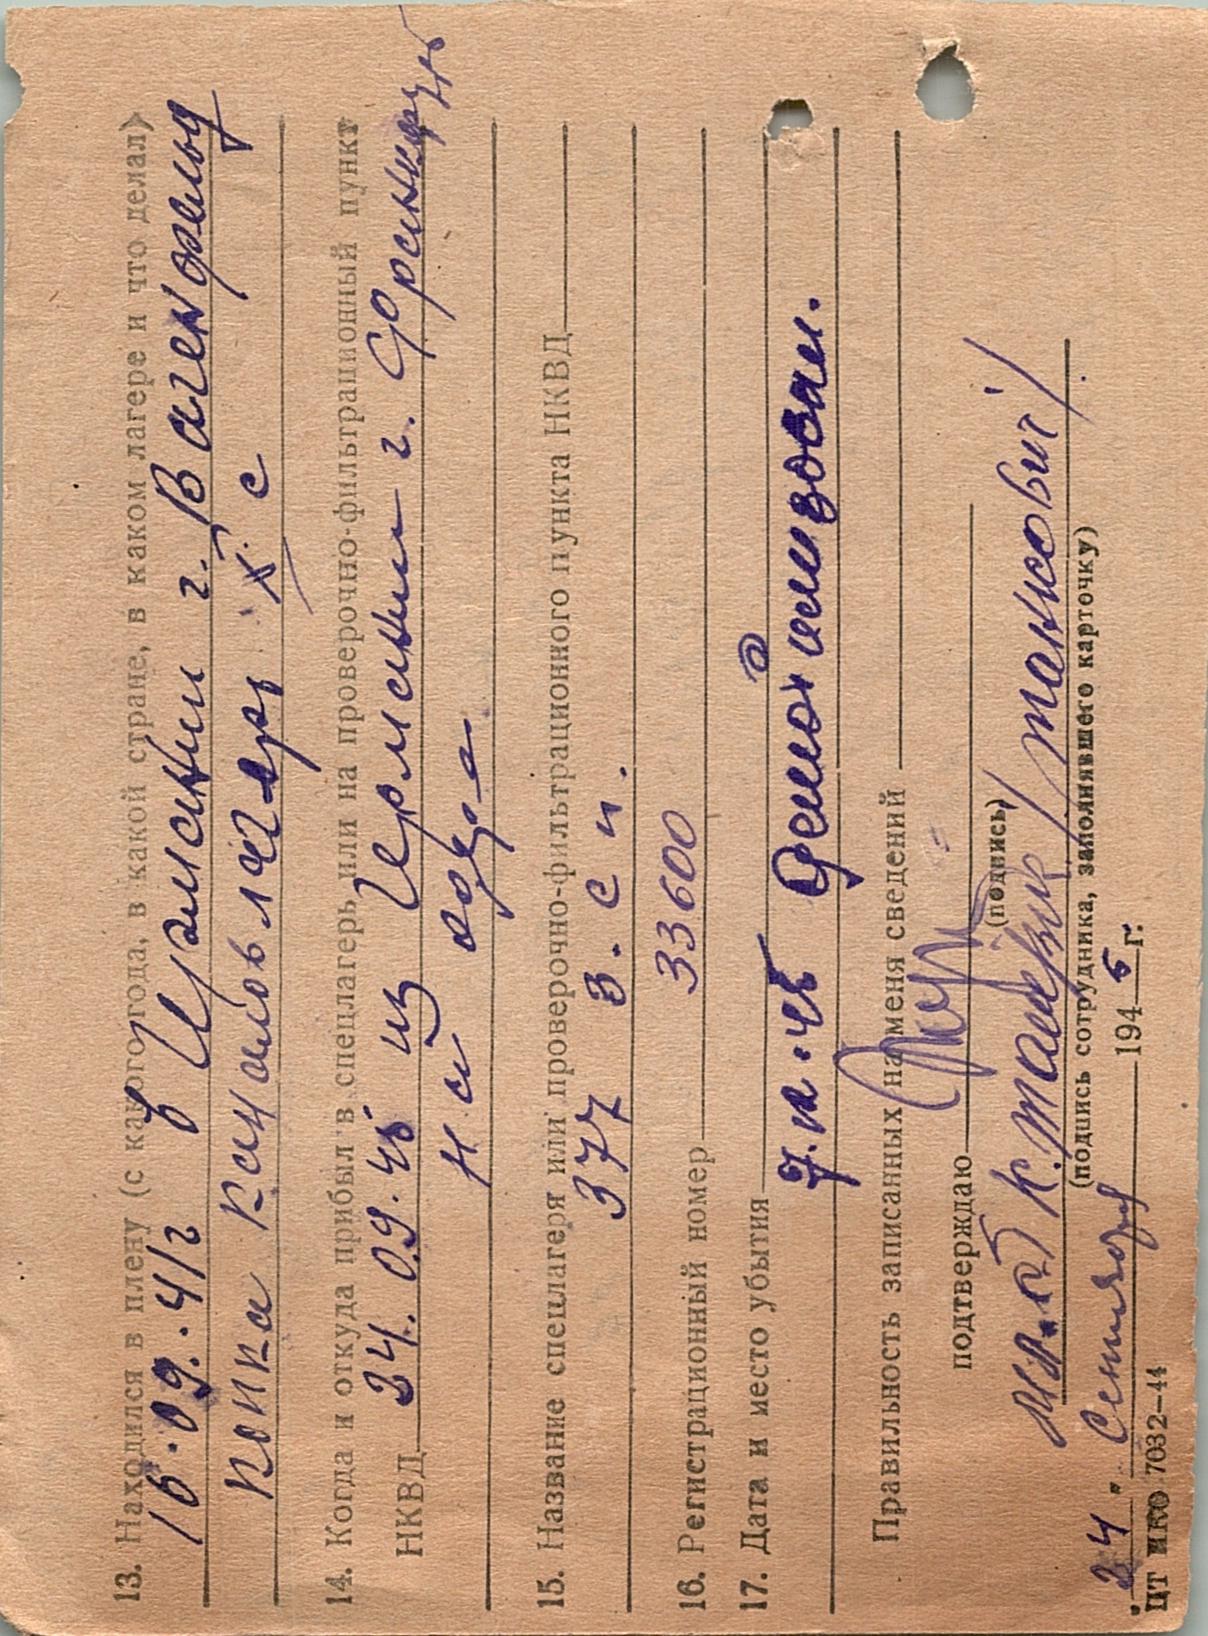 13. Находился в плену (с какого года, в какой стране, в каком лагере и что делал)
16.09.41г в Германии г. Вагенфельд
копка канав лагерь с
14. Когда и откуда прибыл в спецлагерь или на проверочно-фильтрационный пункт
НКВД 24.09.45 из Германии г. Франкфурт
на одра
15. Название спецлагеря или проверочно-фильтрационного пункта НКВД
377 з. с п.
16. Регистрационный номер 33600
17. Дата и место убытия
демобилизован.
Правильность записанных на меня сведений
подтверждаю
(подпись)
(подпись сотрудника, заполнявшего карточку)
"24" Сентября 1945 г.
ЦТ НКО 7032—44